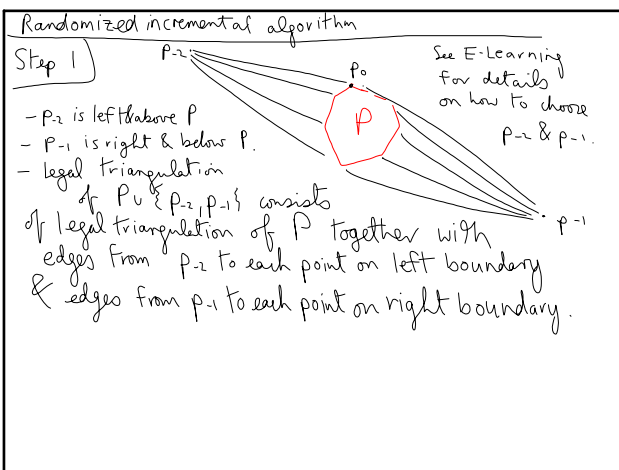 Randomized incremental algorithm
Step 1
P-2
P0
See E-Learning
for details
on how to choose
P-2 & P-1.
P
- P-2 is left & above P
- P-1 is right & below P.
- legal triangulation
of P∪{P-2, P-1} consists
P-1
of legal triangulation of P together with
edges from P-2 to each point on left boundary
& edges from P-1 to each point on right boundary.